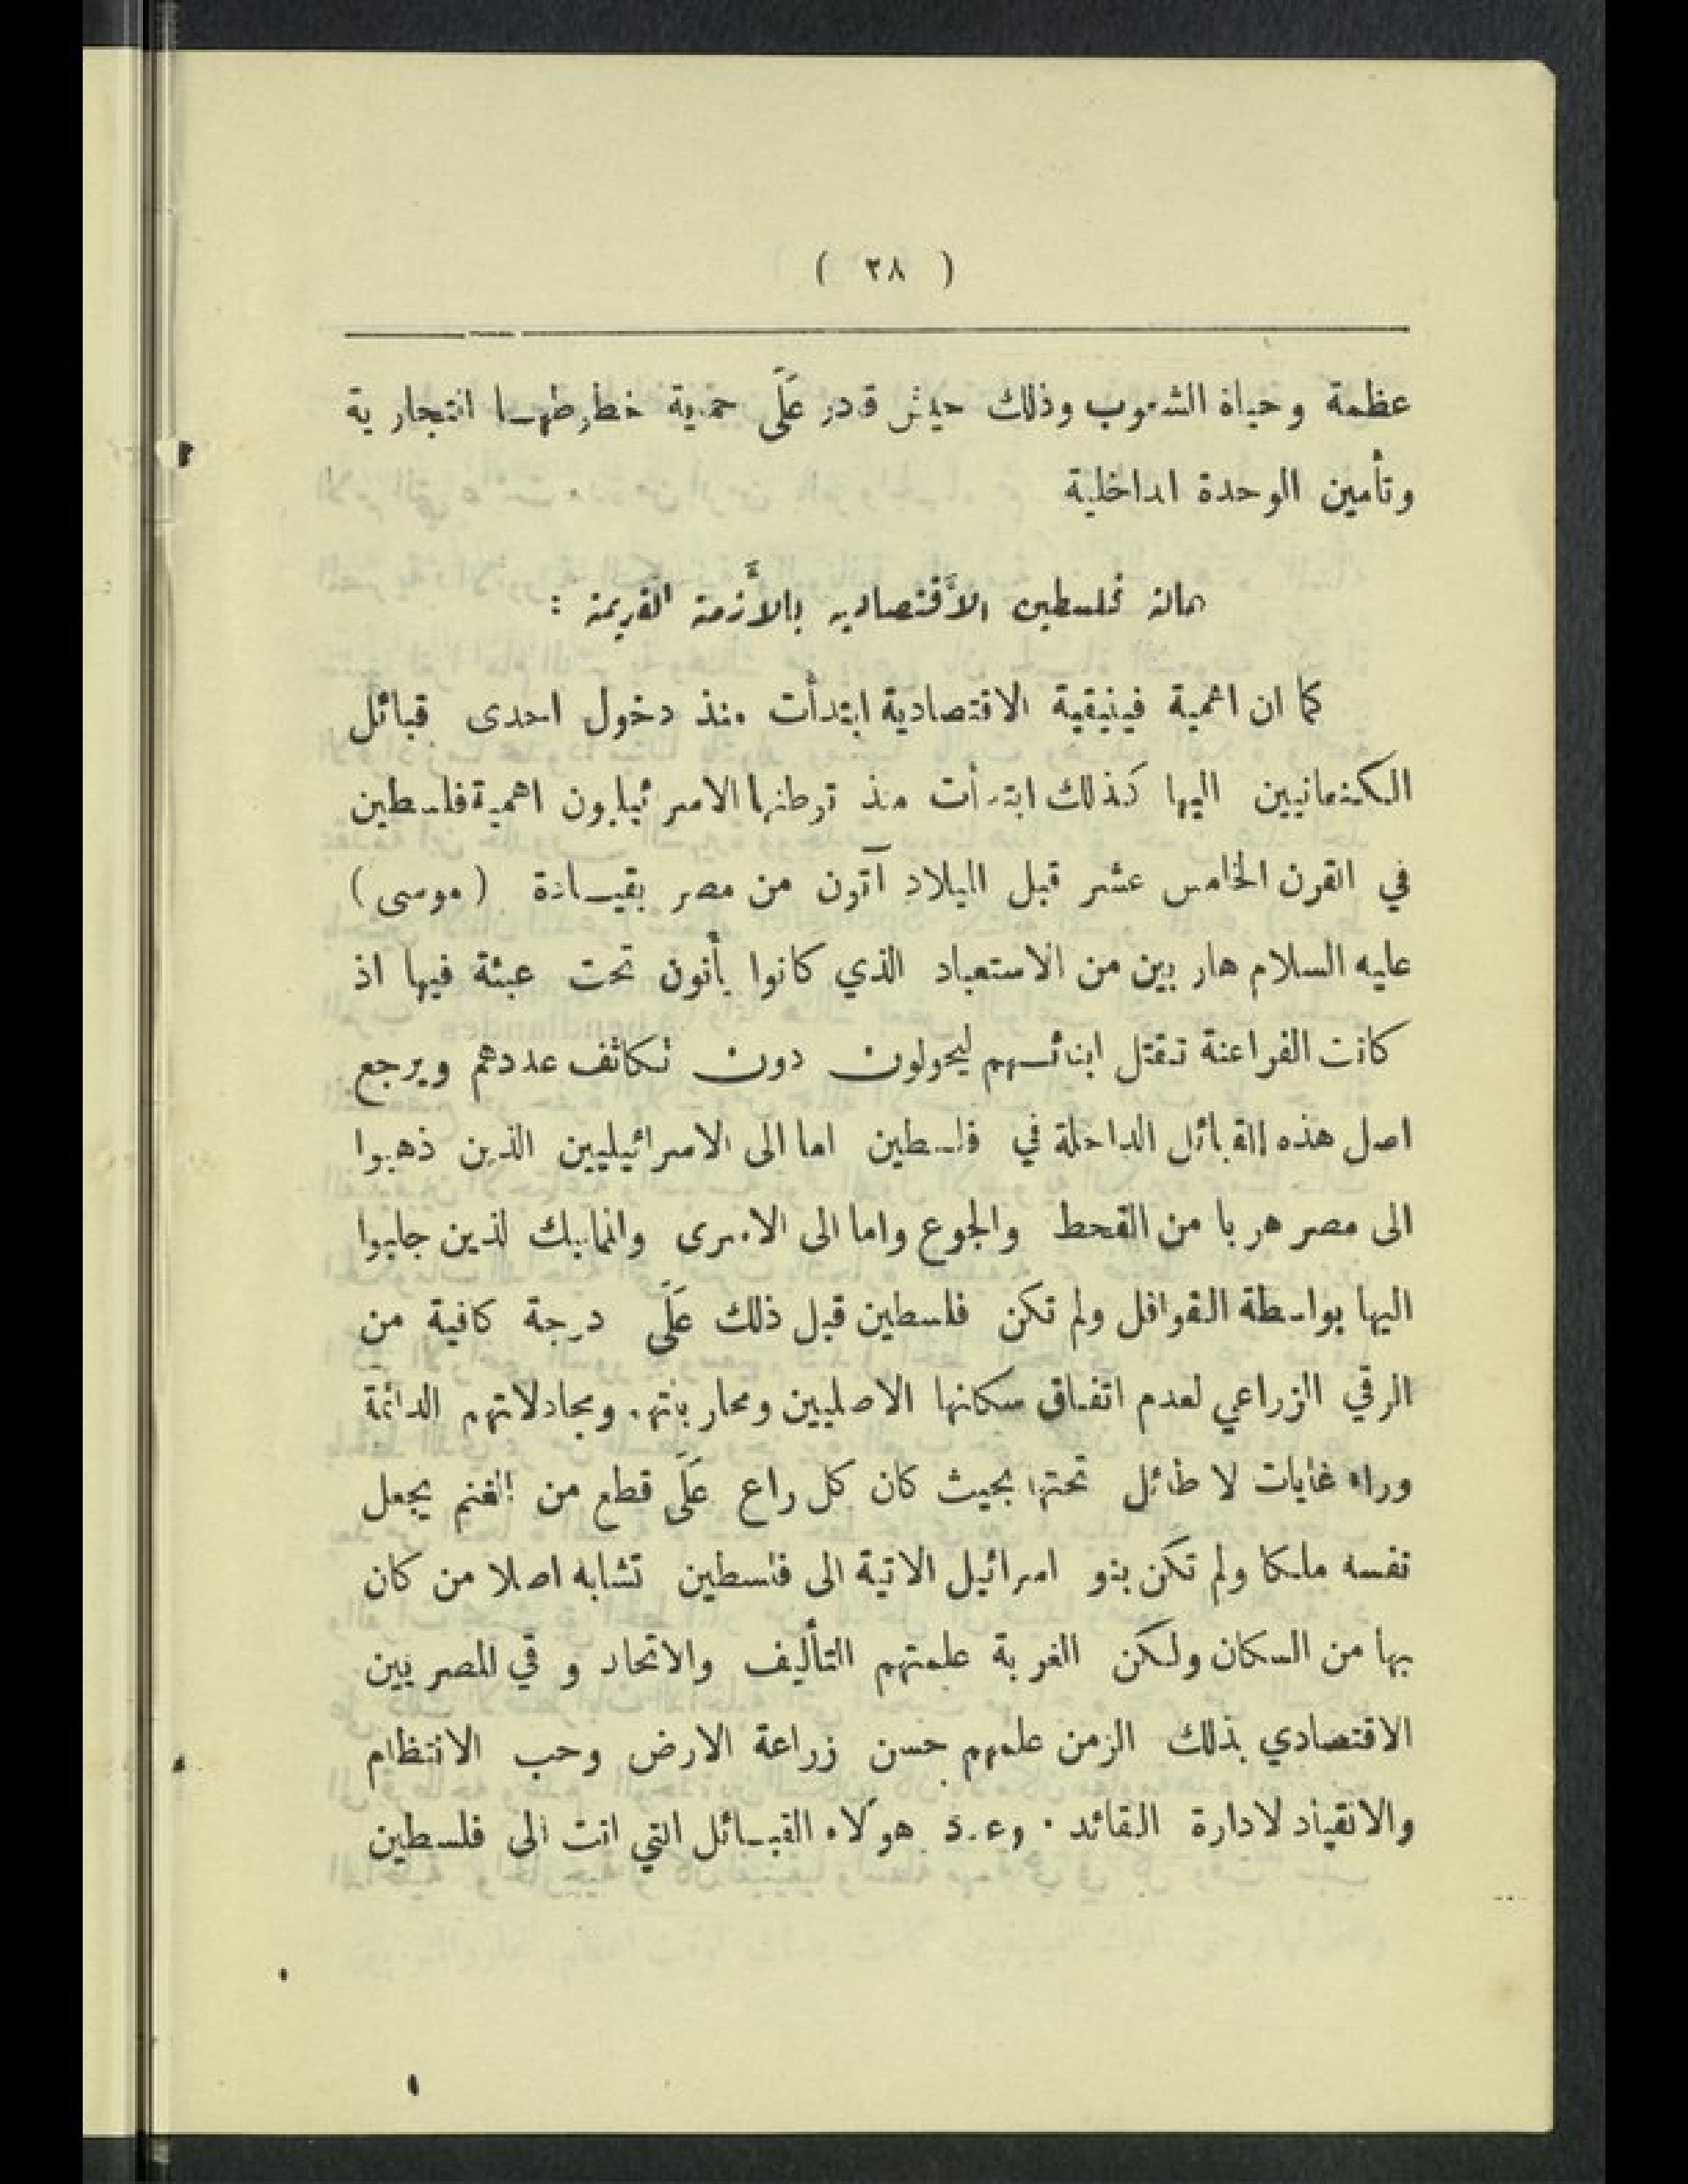 ( ٢٨ )
عظمة وحياة الشعوب وذلك حيث قدر عَلَى حمية خطوطهـا التجارية
وتأمين الوحدة الداخلية
حالة فلسطين الأقتصاديه بالأزمة القديمة :
كما ان اهمية فينيقية الاقتصادية ابتدأت منذ دخول احدى قبائل
الكنعانيين اليها كذلك ابتدأت منذ توطنها الاسرئيليون اهمية فلسطين
في القرن الخامس عشر قبل الميلاد آتون من مصر بقيـادة ( موسى )
عليه السلام هاربين من الاستعباد الذي كانوا يأنون تحت عبئة فيها اذ
كانت الفراعنة تقتل ابنائهم ليحولون دون تكاثف عددهم ويرجع
اصل هذه القبائل الداخلة في فلسطين اما الى الاسرائيليين الذين ذهبوا
الى مصر هربا من القحط والجوع واما الى الاسرى والمماليك لذين جلبوا
اليها بواسطة القوافل ولم تكن فلسطين قبل ذلك عَلَى درجة كافية من
الرقي الزراعي لعدم اتفاق سكانها الاصليين ومحارباتهم ومجادلاتهم الدائمة
وراء غايات لا طائل تحتها بحيث كان كل راع عَلَى قطع من الغنم يجعل
نفسه ملكا ولم تكن بنو اسرائيل الاتية الى فلسطين تشابه اصلا من كان
بها من السكان ولكن الغربة علمتهم التأليف والاتحاد و في المصريين
الاقتصادي بذلك الزمن علمهم حسن زراعة الارض وحب الانتظام
والانقياد لادارة القائد . وعدد هولاء القبـائل التي اتت الى فلسطين